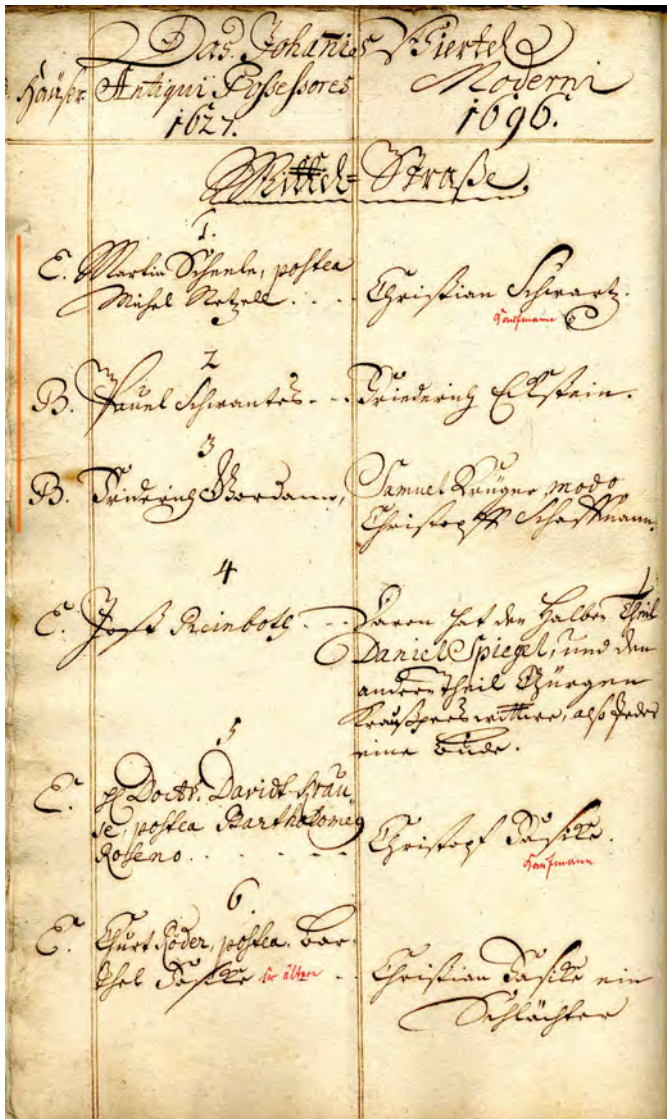 Das Johannis Viertel
Häuser. Antiqui Possessores Moderni
1627. 1696.
Mittel-Straße.
1.
E. Martin Scheele, postea
Michel Netzell . . . . Christian Schwartz.
Kaufmann
2
B. Pauel Schwantes . . . Friederich Eckstein.
3
B. Friderich Bordann, Samuel Krüger modo
Christopff Schaffmann.
4
E. Jost Reinboth . . . Daron hat den Halben Theil
Daniel Spiegel, und den
andern theil Chürgen
wittwe, also Jeder
eine Bude.
5
E. Doctr. Davidt Krau-
se, postea Bartholomeg
Roseno . . . . Christopf
Kaufmann
6.
E. Churt Röder, postea. Bar-
thel der ältere . . Christian ein
Schlächter